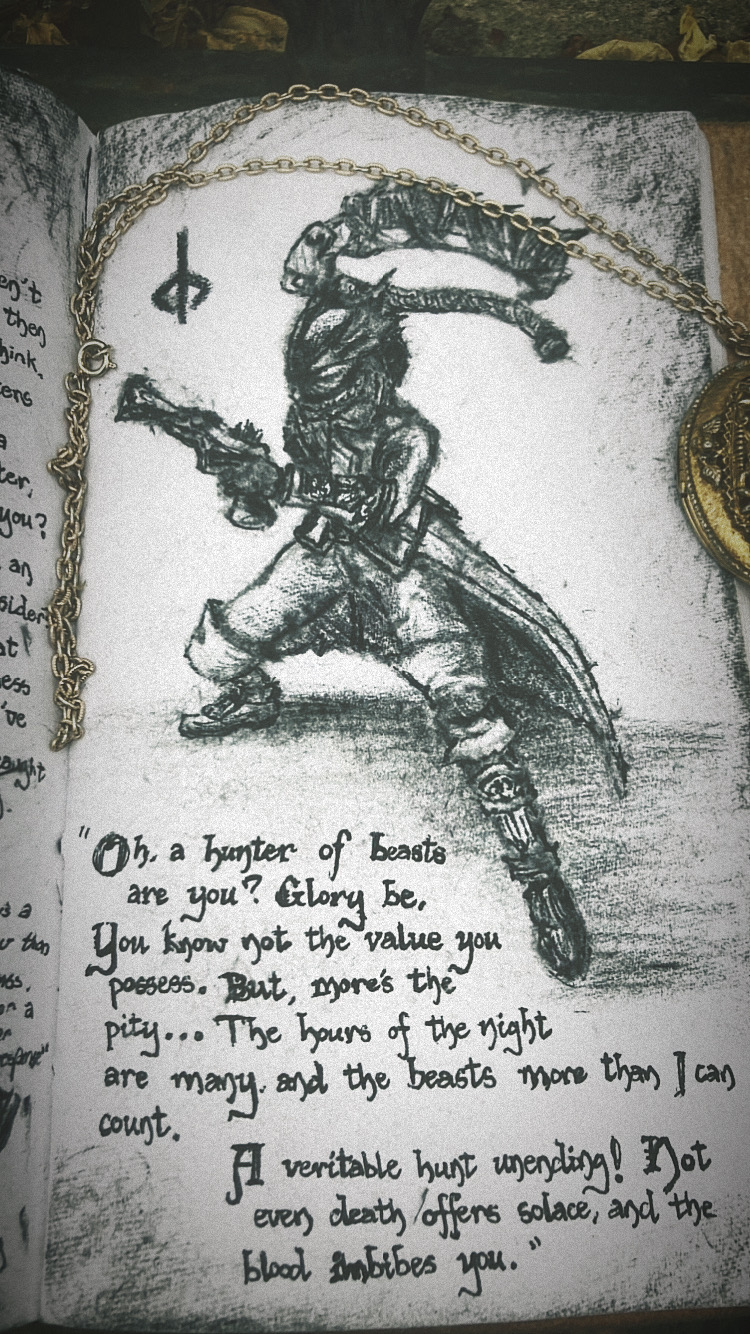 en't
they
hink,
ter,
you?
an
sider
at!
ess
've
"Oh, a hunter of beasts
are you? Glory be,
You know not the value you
possess. But, more's the
pity... The hours of the night
are many, and the beasts more than I can
count.
A veritable hunt unending! Not
even death offers solace, and the
blood imbibes you."